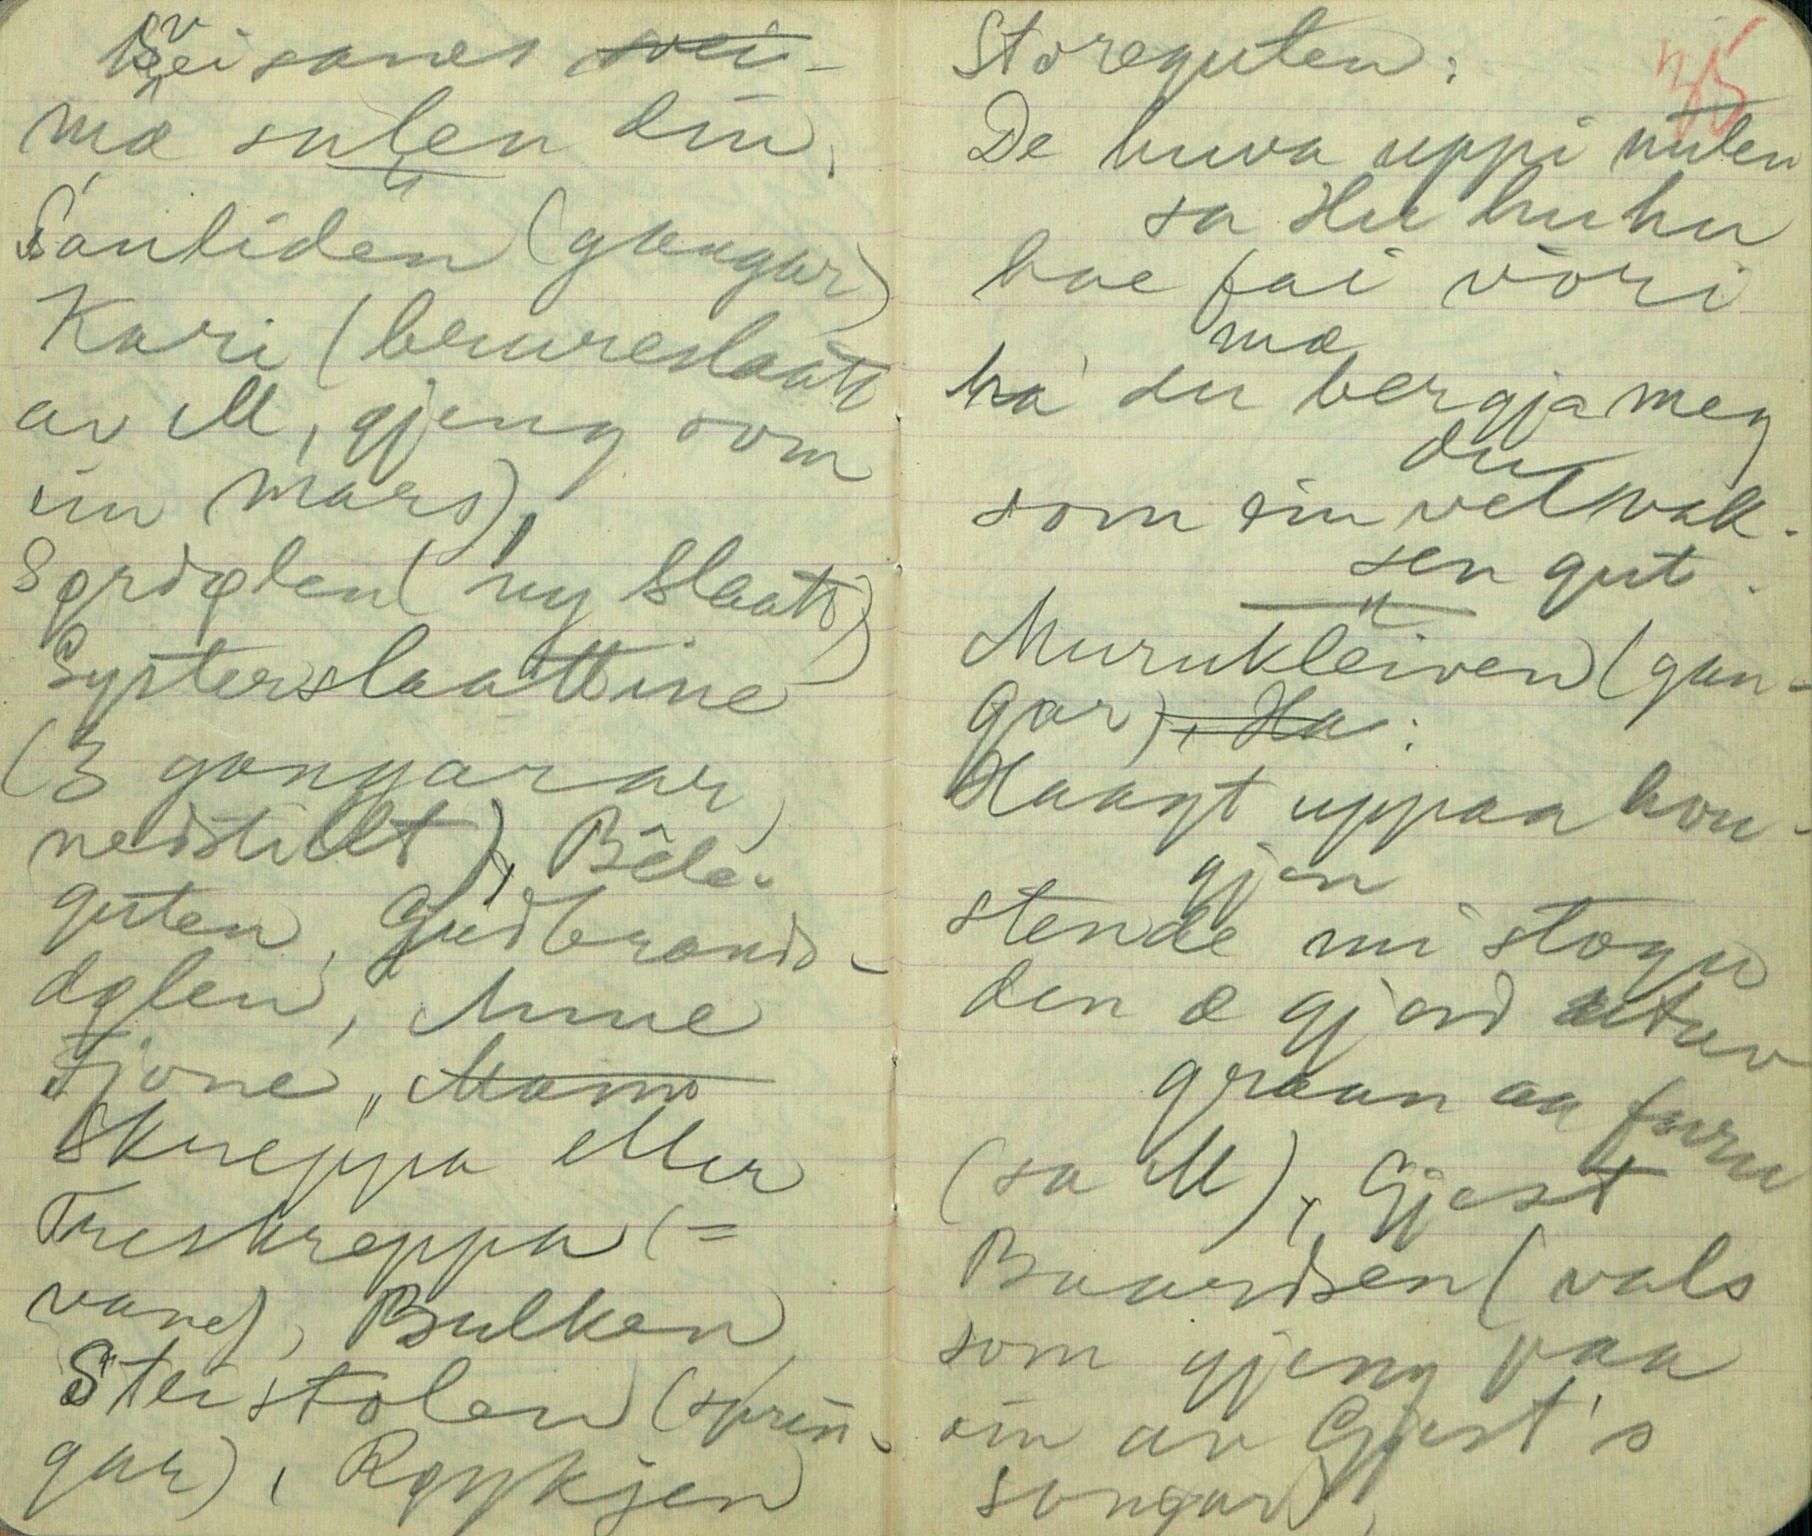 mæ sulen din,
Sontiden (gangar)
Kari (brureslaatt
av M, gjeng som
ein mars),
Sørdølen (ny slaatt)
Systerslaattine
(3 gangarar
nedstillt), Bêle-
guten, Gudbrands-
dølen, Anne
Fjone, Mans
Skreppa eller
Treskreppa (=
vand), Bulken,
Steistolen (sprin-
gar), Røykjen
35
Storeguten:
De huva uppi nuten
sa Hu hu hu
hae fai vôri
mæ
ha du bergja meg
du
som ein vel vak-
sen gut.
Murukleiven (gan-
gar), Ha:
Haagt uppaa hon-
gjen
stende mi stogu
den æ gjord utav
graan aa furu
(sa M), Gjest
Baardsen (vals
som gjeng paa
ein av Gjest's
songar),